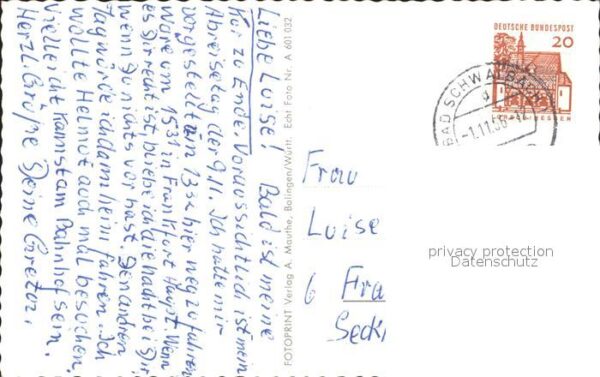 Liebe Luise! Bald ist meine
Kur zu Ende. Voraussichtlich ist mein
Abreisetag der 9.11. Ich hatte mir
vorgestellt um 13 hier weg zu fahren
Wäre um 15 31 in Frankfurt Haupt. Wenn
es Dir recht ist, bliebe ich die Nacht bei Dir,
wenn Du nichts vor hast. Den andren
Tag würde ich dann heim fahren. Ich
wollte Helmut auch mal besuchen.
Vielleicht kannst am Bahnhof sein.
Herzl. Grüße Deine
FOTOPRINT Verlag A. Mauthe, Balingen/Württ. Echt Foto Nr. A 601 032
DEUTSCHE BUNDESPOST
20
LORSCH HESSEN
BAD SCHWALBACH
Frau
Luise
6 Fra
Seck
privacy protection
Datenschutz